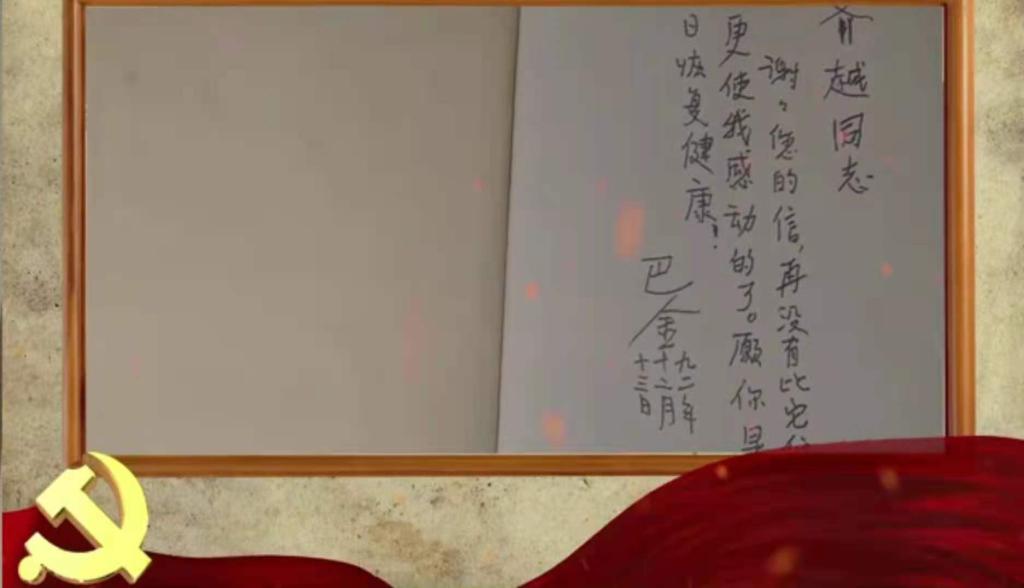 齐越同志
谢々您的信,再没有比它
更使我感动的了。愿你早
日恢复健康!
巴金
九二年
十二月
十三日